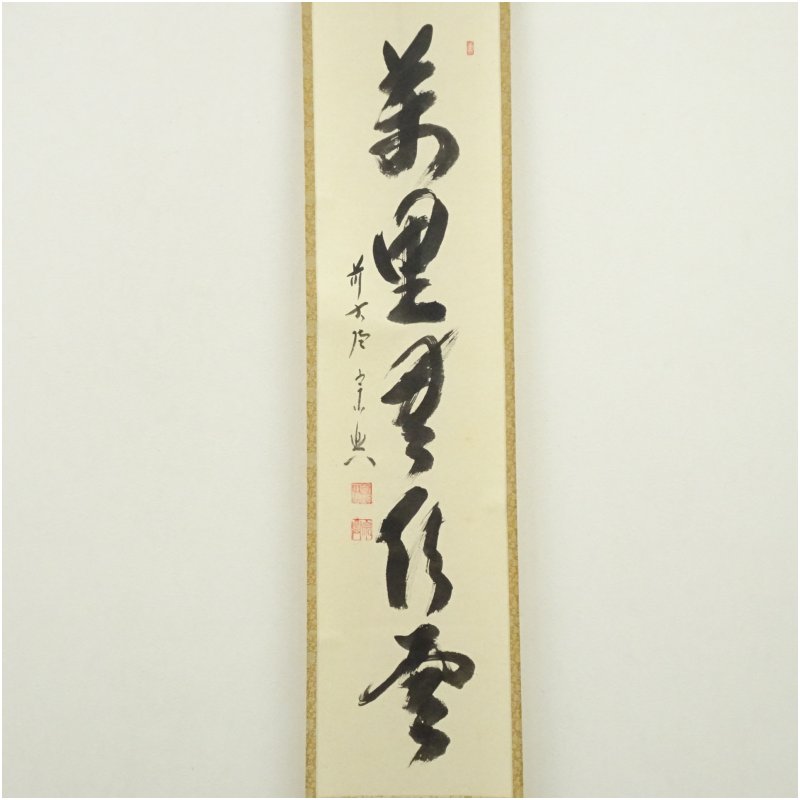 萬里無片雲
前大徳 宗興